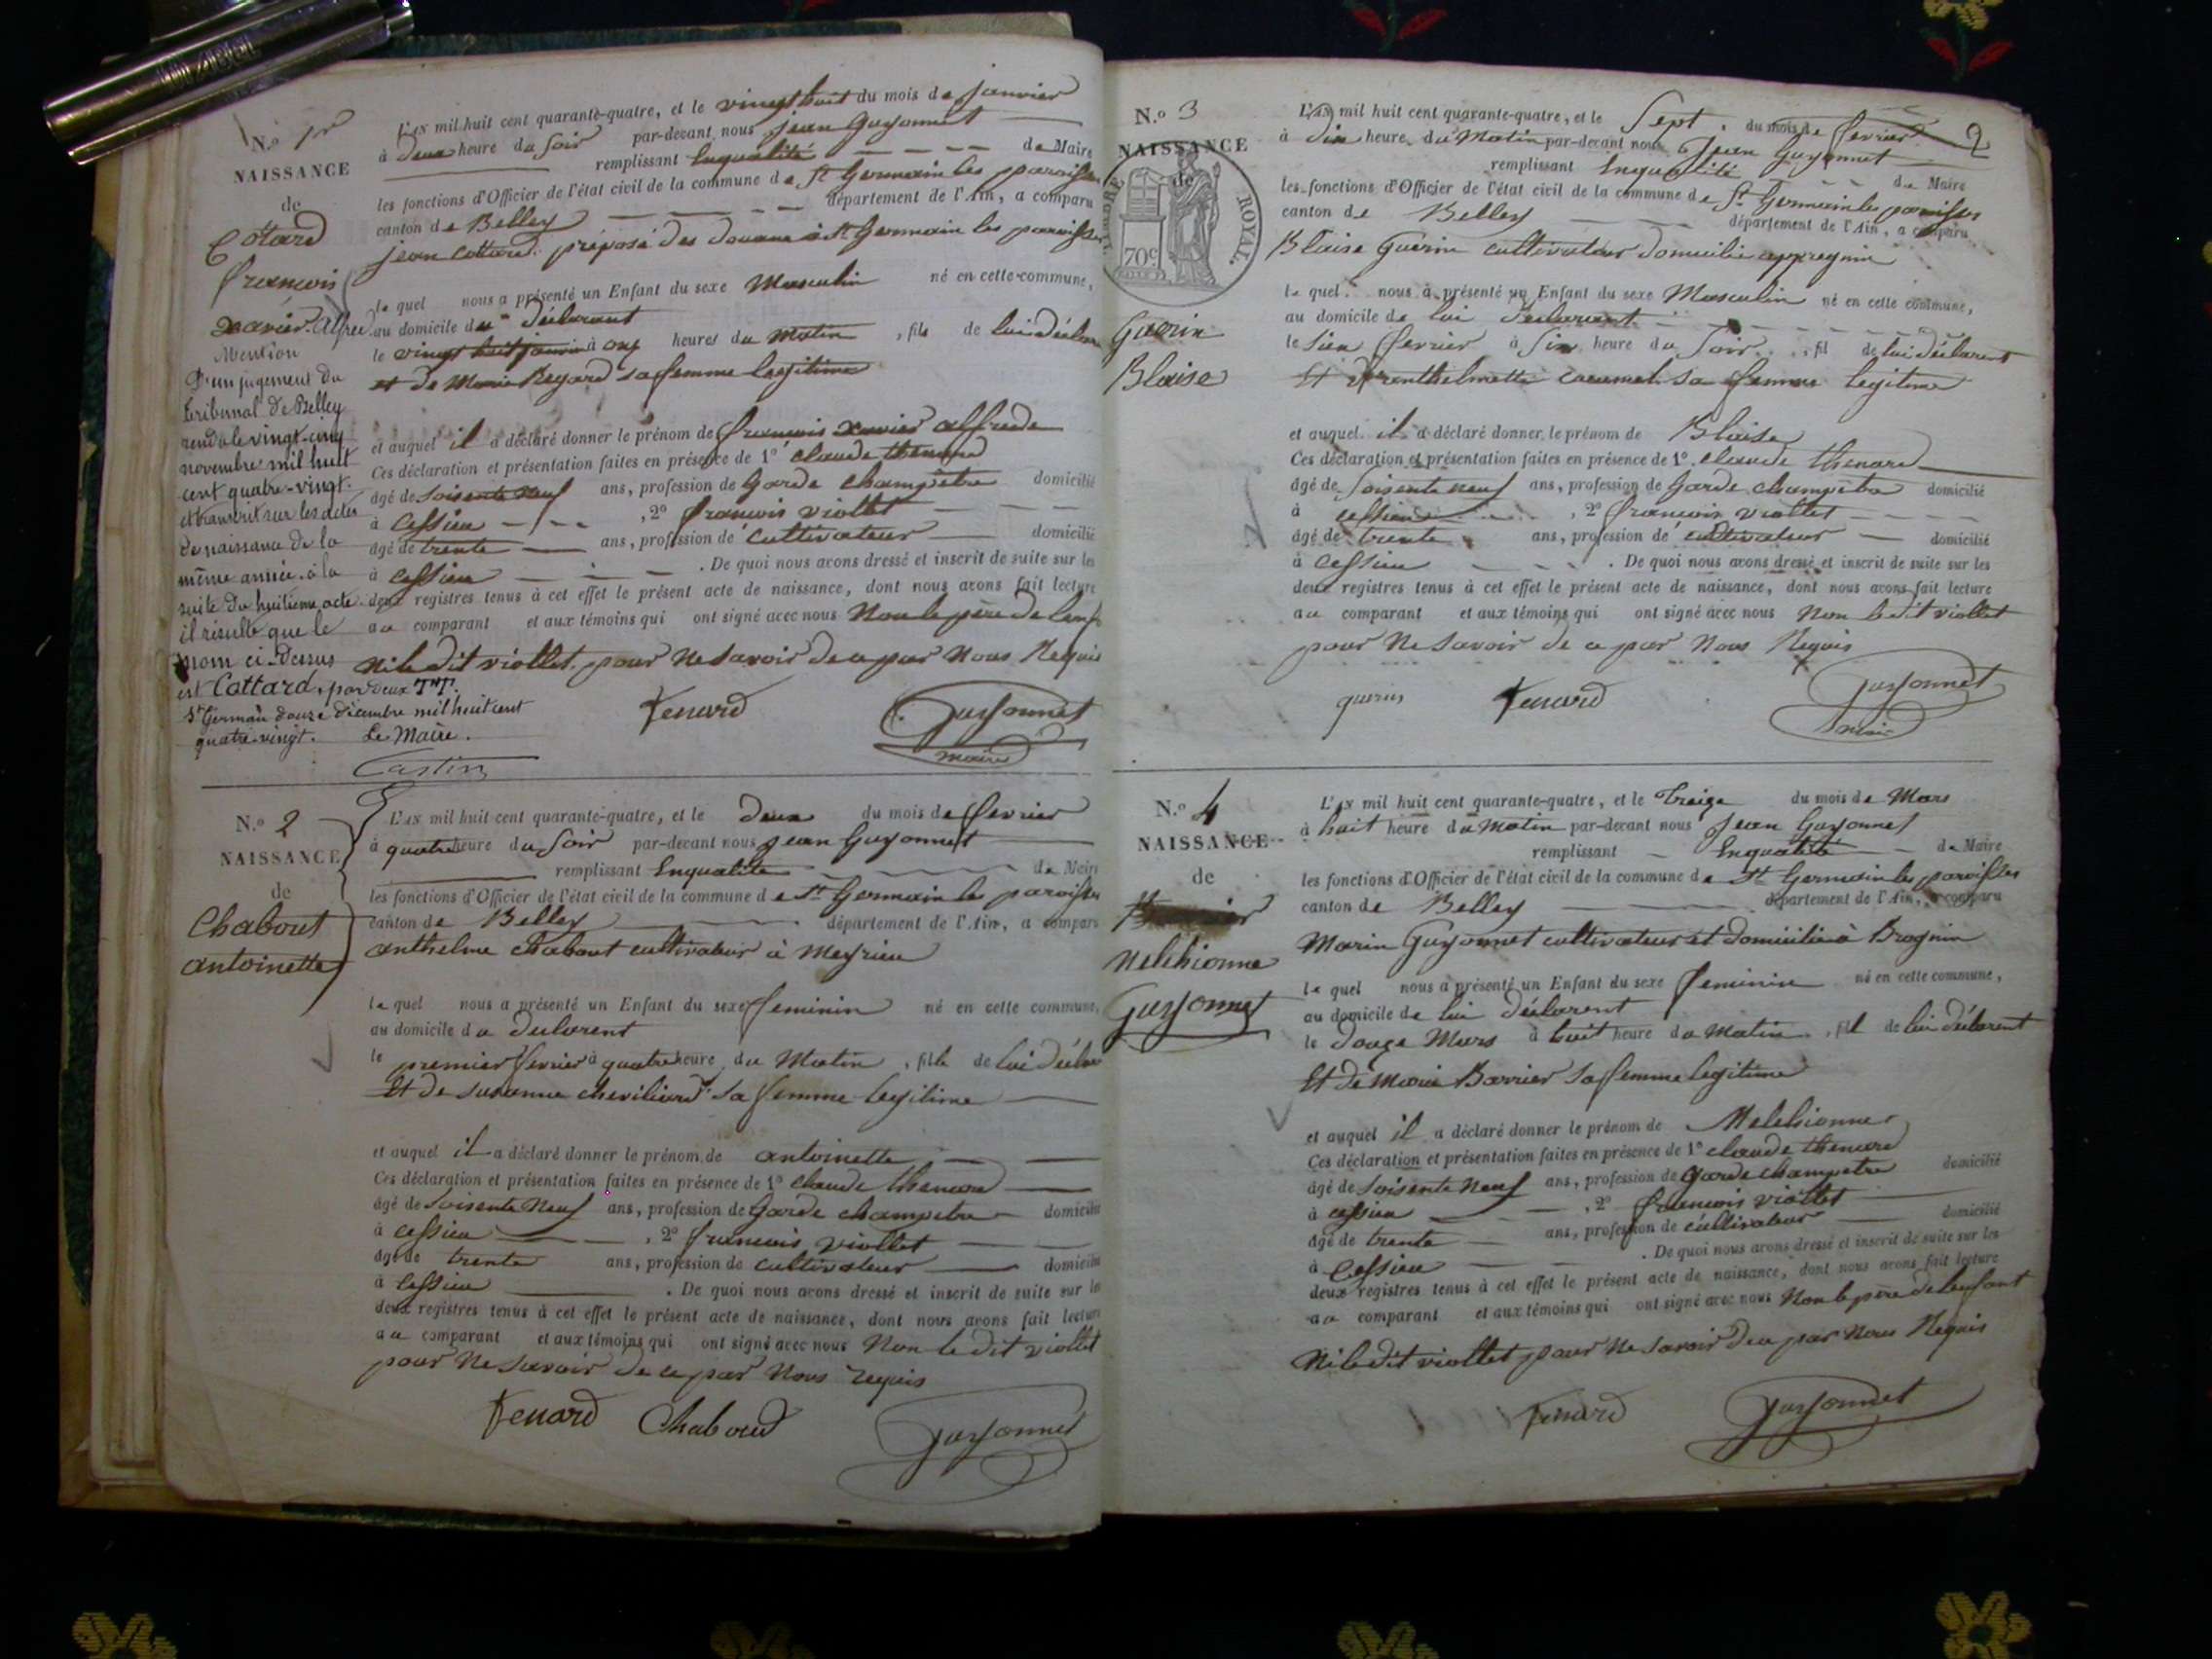 N.o 1er
NAISSANCE
de
Cotard
francois
xavier Alfred
Mention
D'un jugement du
tribunal de Belley
rendu le vingt-cinq
novembre mil huit
cent quatre-vingt.
et transcrit sur les actes
de naissance de la
même année, à la
suite du huitième acte
il résulte que le
nom ci-dessus
est Cottard, par deux "T".
St Germain douze décembre mil huit cent
quatre-vingt. Le Maire.
Castin
L'AN mil huit cent quarante-quatre, et le vingt huit du mois de janvier
à deux heure du soir par-devant nous jean Guyonnet
remplissant Enqualité de Maire
les fonctions d'Officier de l'état civil de la commune de St Germain les paroisses
canton de Belley département de l'Ain, a comparu
jean Cottard préposé des douane à St Germain les paroisses
le quel nous a présenté un Enfant du sexe Masculin né en cette commune,
au domicile du Déclarant
le vingt huit janvier à onze heures du Matin, fils de lui déclara
et de Marie Regard sa femme legitime
et auquel il a déclaré donner le prénom de francois xavier alfrede
Ces déclaration et présentation faites en présence de 1o claude thenard
âgé de soisente neuf ans, profession de Garde champêtre domicilié
à Cessieu, 2o francois viollet
âgé de trente ans, profession de cultivateur domicilié
à Cessieu. De quoi nous avons dressé et inscrit de suite sur les
deux registres tenus à cet effet le présent acte de naissance, dont nous avons fait lecture
au comparant et aux témoins qui ont signé avec nous Non le père de lenf
ni le dit viollet pour ne savoir de ce par nous Requis
tenard Guyonnet
maire
N.o 2
NAISSANCE
de
Chabout
antoinette
L'AN mil huit cent quarante-quatre, et le deux du mois de fevrier
à quatre heure du soir par-devant nous jean Guyonnet
remplissant Enqualité de Maire
les fonctions d'Officier de l'état civil de la commune de St Germain les paroisses
canton de Belley département de l'Ain, a comparu
anthelme chabout cultivateur à Meyrieu
le quel nous a présenté un Enfant du sexe feminin né en cette commune,
au domicile du declarent
le premier fevrier à quatre heure du Matin, fille de lui déclar
Et de susanne chevilliard sa femme legitime
et auquel il a déclaré donner le prénom de antoinette
Ces déclaration et présentation faites en présence de 1o claude thenard
âgé de soisente neuf ans, profession de Garde champetre domicilié
à cessieu, 2o francois viollet
âgé de trente ans, profession de cultivateur domicilié
à Cessieu. De quoi nous avons dressé et inscrit de suite sur les
deux registres tenus à cet effet le présent acte de naissance, dont nous avons fait lecture
au comparant et aux témoins qui ont signé avec nous Non le dit viollet
pour ne savoir de ce par nous requis
tenard Chaboud Guyonnet
2
N.o 3
NAISSANCE
de
TIMBRE ROYAL
70c
Guerin
Blaise
L'AN mil huit cent quarante-quatre, et le Sept du mois de fevrier
à dix heure du Matin par-devant nous Jean Guyonnet
remplissant Enqualité de Maire
les fonctions d'Officier de l'état civil de la commune de St Germain les paroisses
canton de Belley département de l'Ain, a comparu
Blaise Guérin cultivateur domicilié appregnin
le quel nous a présenté un Enfant du sexe Masculin né en cette commune,
au domicile de lui declarent
le sieu fevrier à six heure du soir, fil de lui déclarent
Et sa femme legitime
et auquel il a déclaré donner le prénom de Blaise
Ces déclaration et présentation faites en présence de 1o claude thenard
âgé de soisente neuf ans, profession de Garde champetre domicilié
à cessieu, 2o francois viollet
âgé de trente ans, profession de cultivateur domicilié
à Cessieu. De quoi nous avons dressé et inscrit de suite sur les
deux registres tenus à cet effet le présent acte de naissance, dont nous avons fait lecture
au comparant et aux témoins qui ont signé avec nous Non le dit viollet
pour ne savoir de ce par nous Requis
guerin tenard Guyonnet
maire
N.o 4
NAISSANCE
de
Melchionne
Guyonnet
L'AN mil huit cent quarante-quatre, et le Treize du mois de Mars
à huit heure du Matin par-devant nous Jean Guyonnet
remplissant Enqualité de Maire
les fonctions d'Officier de l'état civil de la commune de St Germain les paroisses
canton de Belley département de l'Ain, a comparu
Marin Guyonnet cultivateur et domicilié à Brognin
le quel nous a présenté un Enfant du sexe feminin né en cette commune,
au domicile de lui déclarent
le douze Mars à huit heure du Matin, fil de lui déclarent
Et de Marie Barrier sa femme legitime
et auquel il a déclaré donner le prénom de Melchionne
Ces déclaration et présentation faites en présence de 1o claude thenard
âgé de soisente neuf ans, profession de Garde champetre domicilié
à cessieu, 2o francois viollet
âgé de trente ans, profession de cultivateur domicilié
à Cessieu. De quoi nous avons dressé et inscrit de suite sur les
deux registres tenus à cet effet le présent acte de naissance, dont nous avons fait lecture
au comparant et aux témoins qui ont signé avec nous Non le père de lenfant
Ni le dit viollet pour ne savoir de ce par nous Requis
tenard Guyonnet